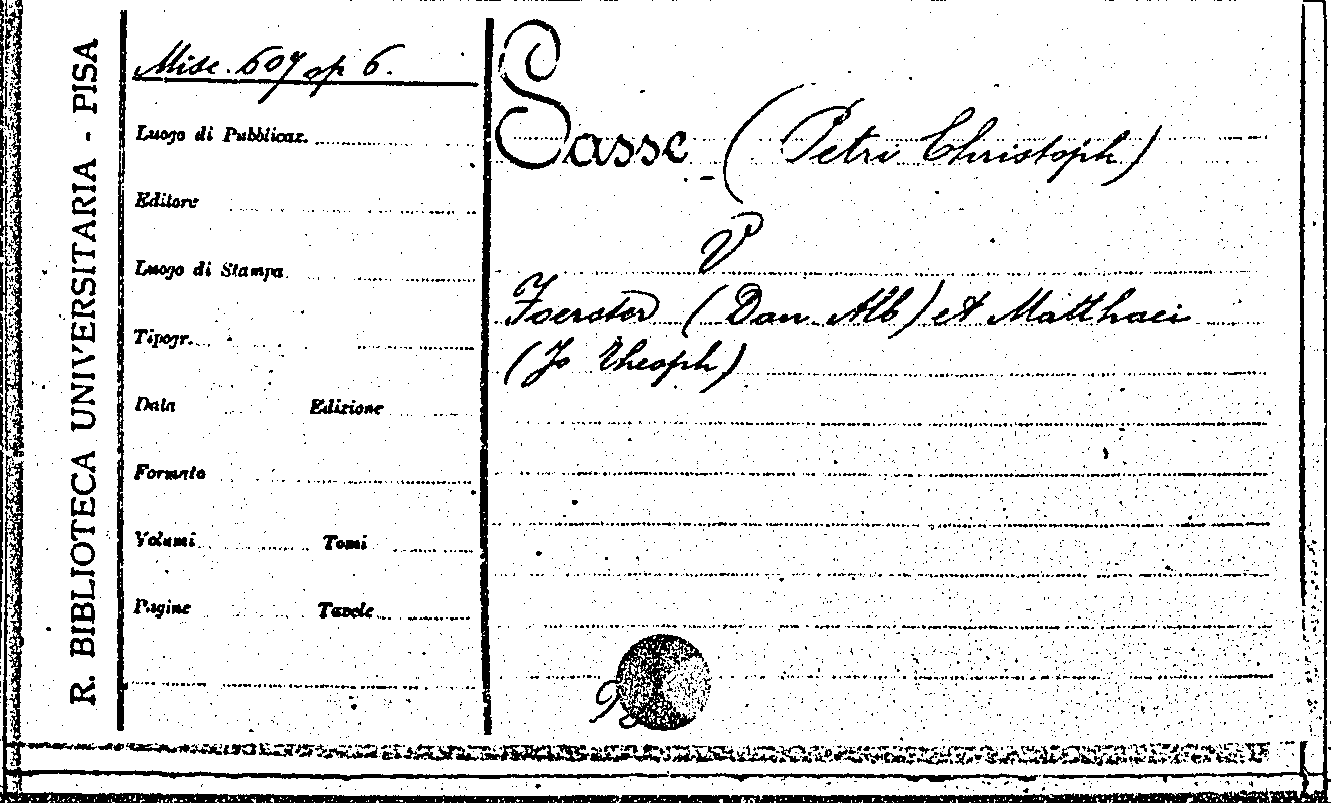 R. BIBLIOTECA UNIVERSITARIA - PISA
Misc. 607 op 6.
Luogo di Pubblicaz.
Editore
Luogo di Stampa
Tipogr.
Data Edizione
Formato
Volumi Tomi
Pagine Tavole
Sasse (Petri Christoph)
V
Foerster (Dan Alb) et Matthaei
(Jo Theoph)